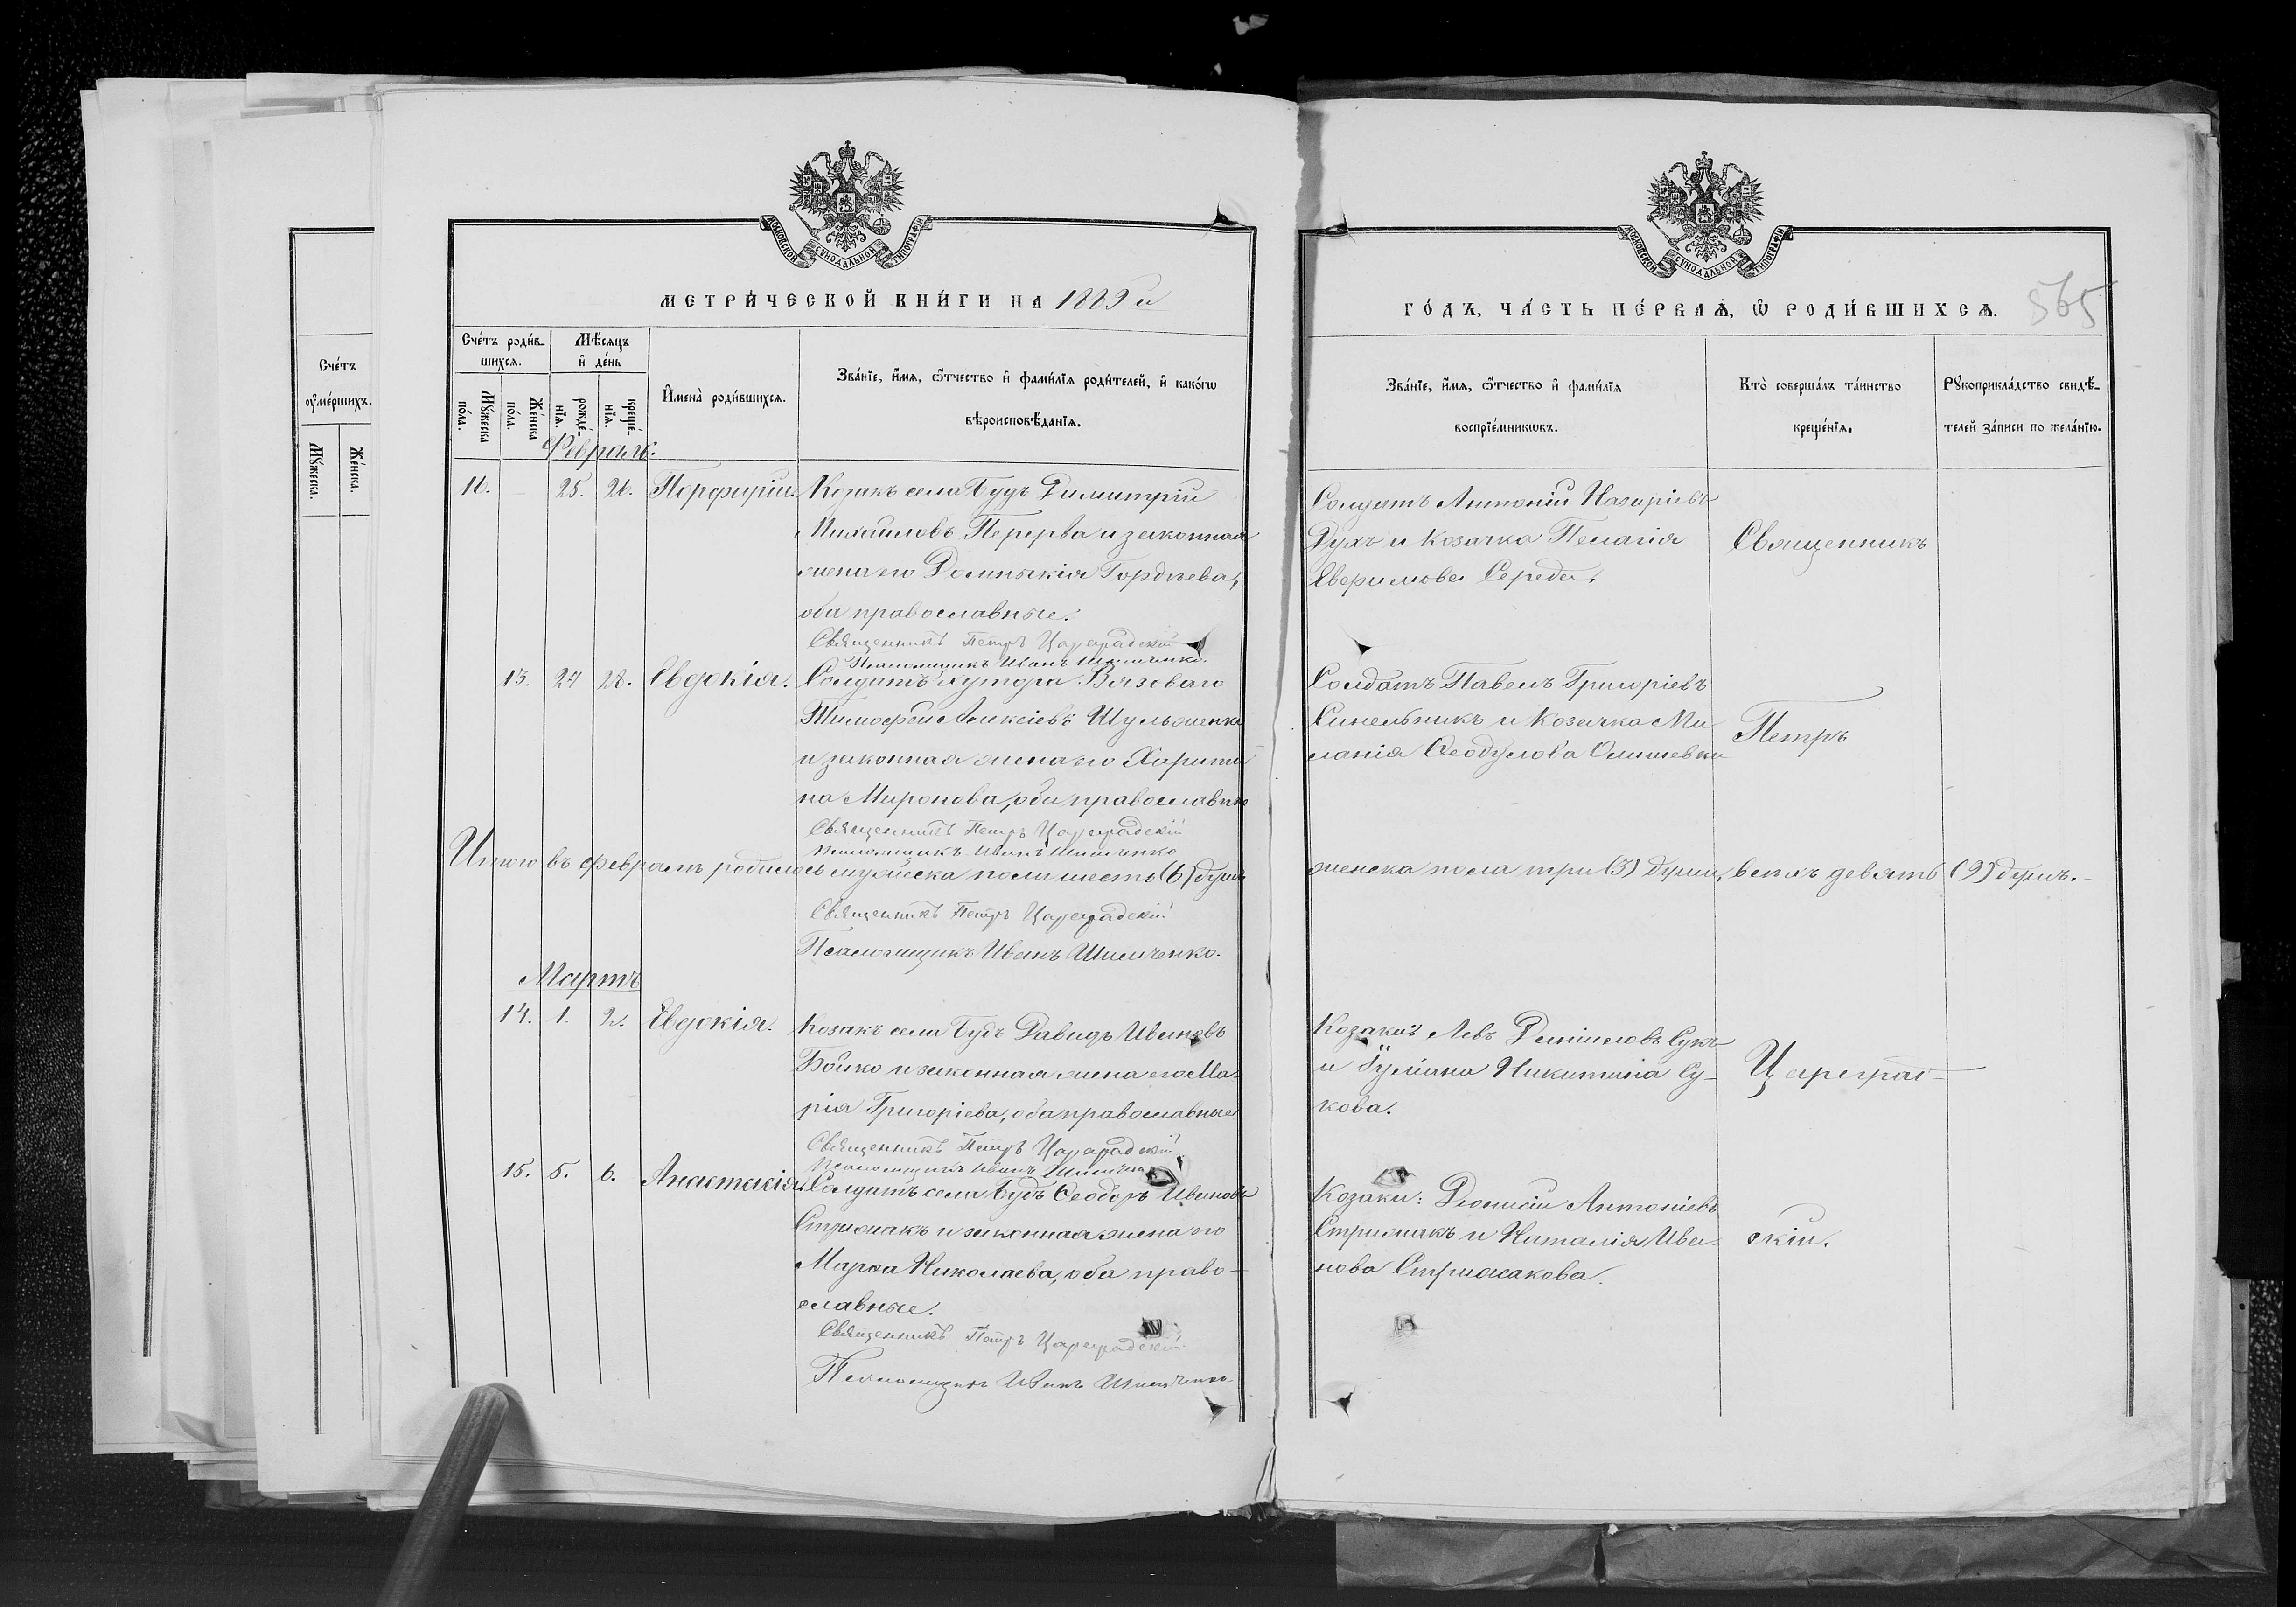 Счетъ
оумершихъ.
Мужеска.
Женска.
МОСКОВСКОЙ СУНОДАЛЬНОЙ ТИПОГРАФІИ
МЕТРИЧЕСКОЙ КНИГИ НА 1889 й
Счетъ родившихся.
Мужеска пола.
Женска пола.
Мѣсяцъ и день
рожденія.
крещенія.
Имена родившихся.
Званіе, имя, отчество и фамилія родителей, и какогω
вѣроисповѣданія.
Февраль:
25. 26. Порфирій. Козакъ села Будъ Димитрій
Михайловъ Перерва и законная
жена его Домникія Гордѣева,
оба православные.
Священникъ Петръ Цареградскій
Псаломщикъ Иванъ
13. 27 28. Евдокія. Солдатъ хутора Вязоваго
Тимофей Алексіевъ Шульженко
и законная жена его Харити
на Миронова, оба православные
Священникъ Петръ Цареградскій
Псаломщикъ Иванъ
Итого въ февралѣ родилось мужеска пола шесть (6) душъ
Священникъ Петръ Цареградскій
Псаломщикъ Иванъ
Мартъ
14. 1. 2. Евдокія. Козакъ села Будъ Давидъ Ивановъ
Бойко и законная жена его Ма-
рія Григоріева, оба православные
Священникъ Петръ Цареградскій
Псаломщикъ Иванъ
15. 5. 6. Анастасія Солдатъ села Будъ Ѳеодоръ Ивановъ
Стрижакъ и законная жена его
Марѳа Николаева, оба право-
славные.
Священникъ Петръ Цареградскій
Псаломщикъ Иванъ
МОСКОВСКОЙ СУНОДАЛЬНОЙ ТИПОГРАФІИ
ГОДЪ, ЧАСТЬ ПЕРВАЯ, Ѡ РОДИВШИХСЯ.
565
Званіе, имя, отчество и фамилія
воспріемникωвъ.
Кто совершалъ таинство
крещенія.
Рукоприкладство свидѣ-
телей записи по желанію.
Солдатъ Антоній Назаріевъ
Духъ и козачка Пелагія
Середа.
Священникъ
Солдатъ Павелъ Григоріевъ
Синельникъ и козачка Ме
ланія Ѳеодулова
Петръ
женска пола три (3) души, всѣхъ девять (9) душъ.
Козаки: Левъ Даниловъ Сукъ
и Іуліана Никитина Су-
кова.
Цареград-
Козаки: Діонисій Антоніевъ
Стрижакъ и Наталія Ива-
нова Стрижакова.
скій.